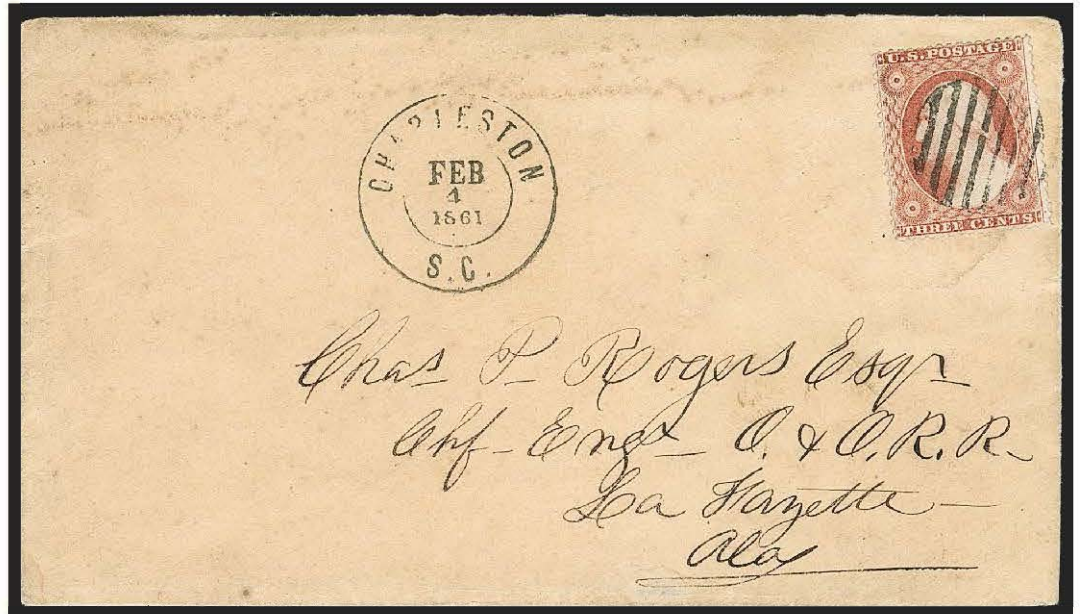 U.S. POSTAGE
THREE CENTS
CHARLESTON
FEB
4
1861
S.C.
Chas P Rogers Esqr
Chf Engr O. & O. R. R.
La Fayette
Ala